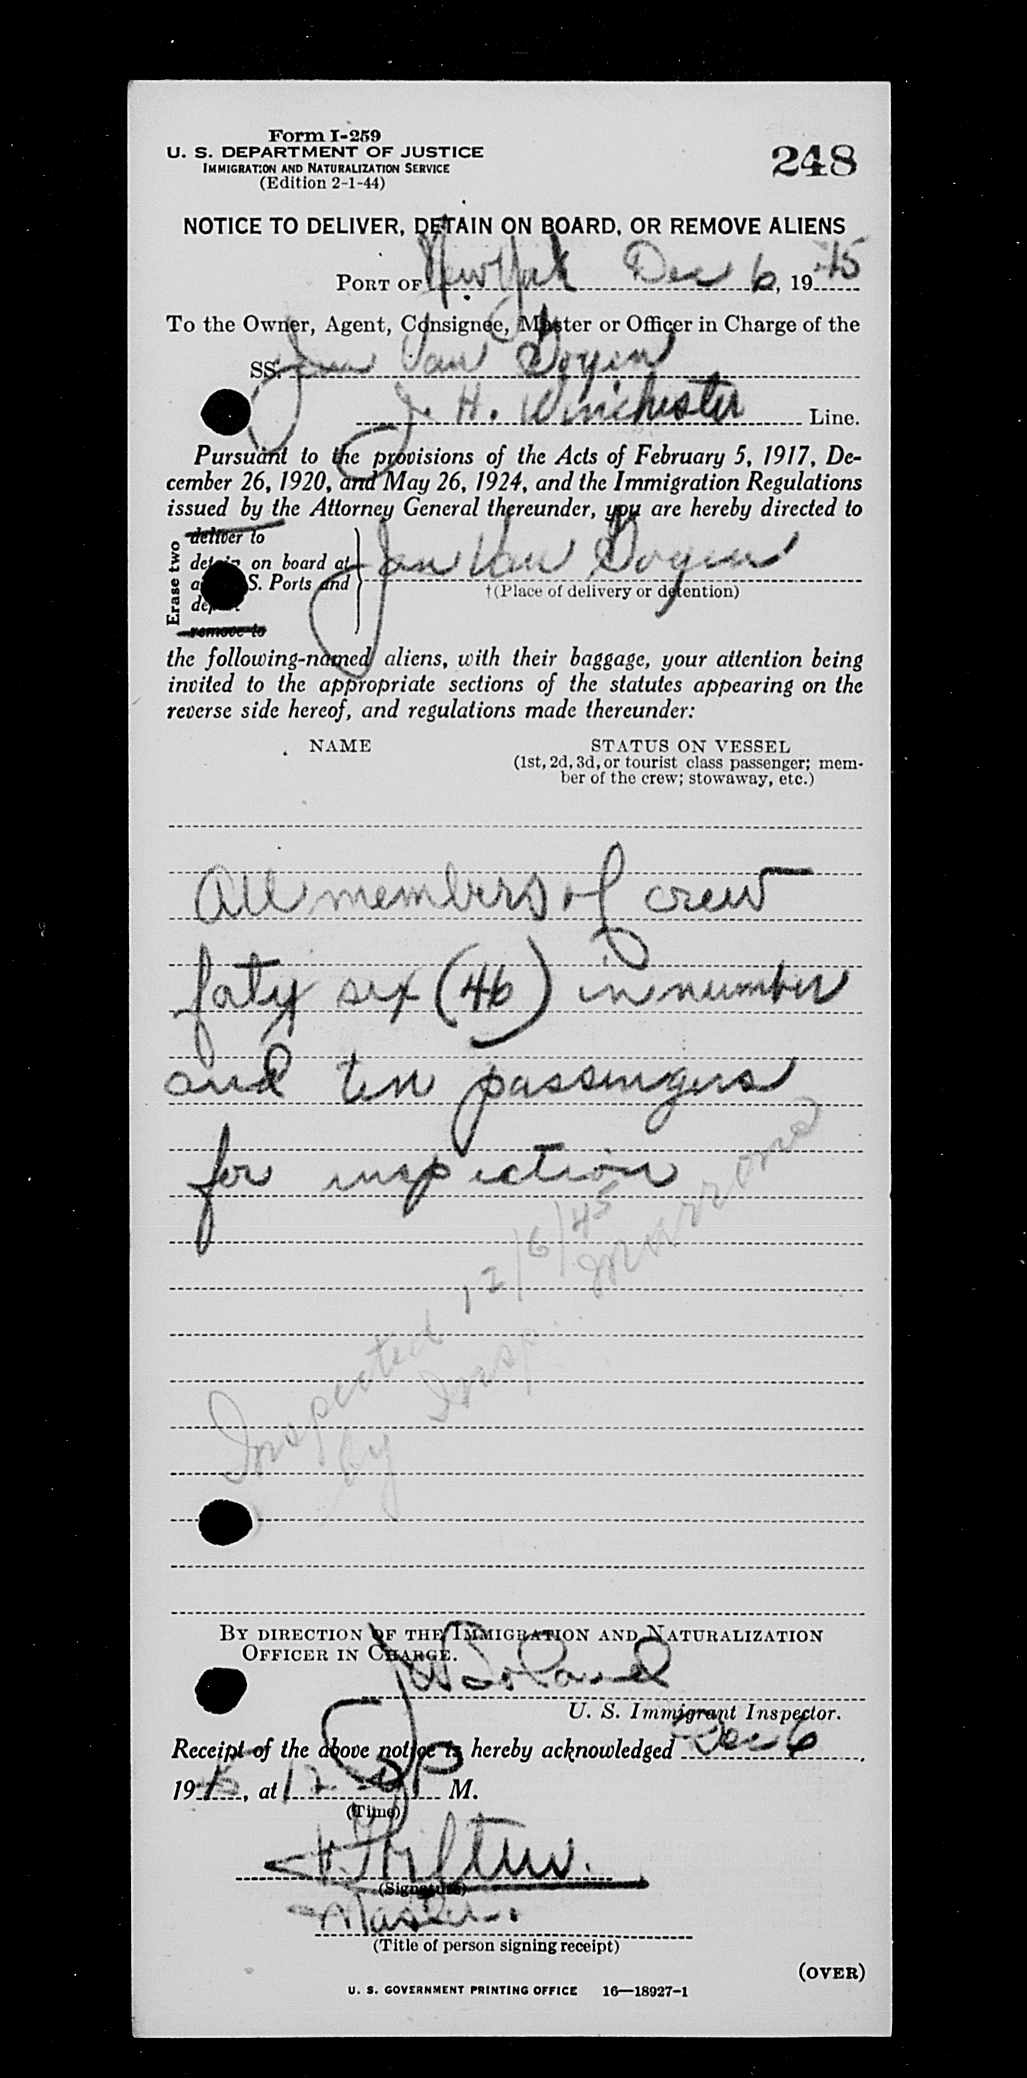 Form I-259
U. S. DEPARTMENT OF JUSTICE
IMMIGRATION AND NATURALIZATION SERVICE
(Edition 2-1-44)
248
NOTICE TO DELIVER, DETAIN ON BOARD, OR REMOVE ALIENS
PORT OF New York Dec 6, 1945
To the Owner, Agent, Consignee, Master or Officer in Charge of the
SS. Jan Van Goyen
J. H. Winchester Line.
Pursuant to the provisions of the Acts of February 5, 1917, De-
cember 26, 1920, and May 26, 1924, and the Immigration Regulations
issued by the Attorney General thereunder, you are hereby directed to
Erase two
deliver to
detain on board at
S. Ports and
remove to
Jan Van Goyen
†(Place of delivery or detention)
the following-named aliens, with their baggage, your attention being
invited to the appropriate sections of the statutes appearing on the
reverse side hereof, and regulations made thereunder:
NAME STATUS ON VESSEL
(1st, 2d, 3d, or tourist class passenger; mem-
ber of the crew; stowaway, etc.)
All members of crew
foty six (46) in number
and ten passengers
for inspection
Inspected 12/6/45
by Insp.
BY DIRECTION OF THE IMMIGRATION AND NATURALIZATION
OFFICER IN CHARGE.
U. S. Immigrant Inspector.
Receipt of the above notice is hereby acknowledged Dec 6,
1945, at 12 P M.
(Time)
(Signature)
Master.
(Title of person signing receipt)
(OVER)
U. S. GOVERNMENT PRINTING OFFICE 16—18927-1